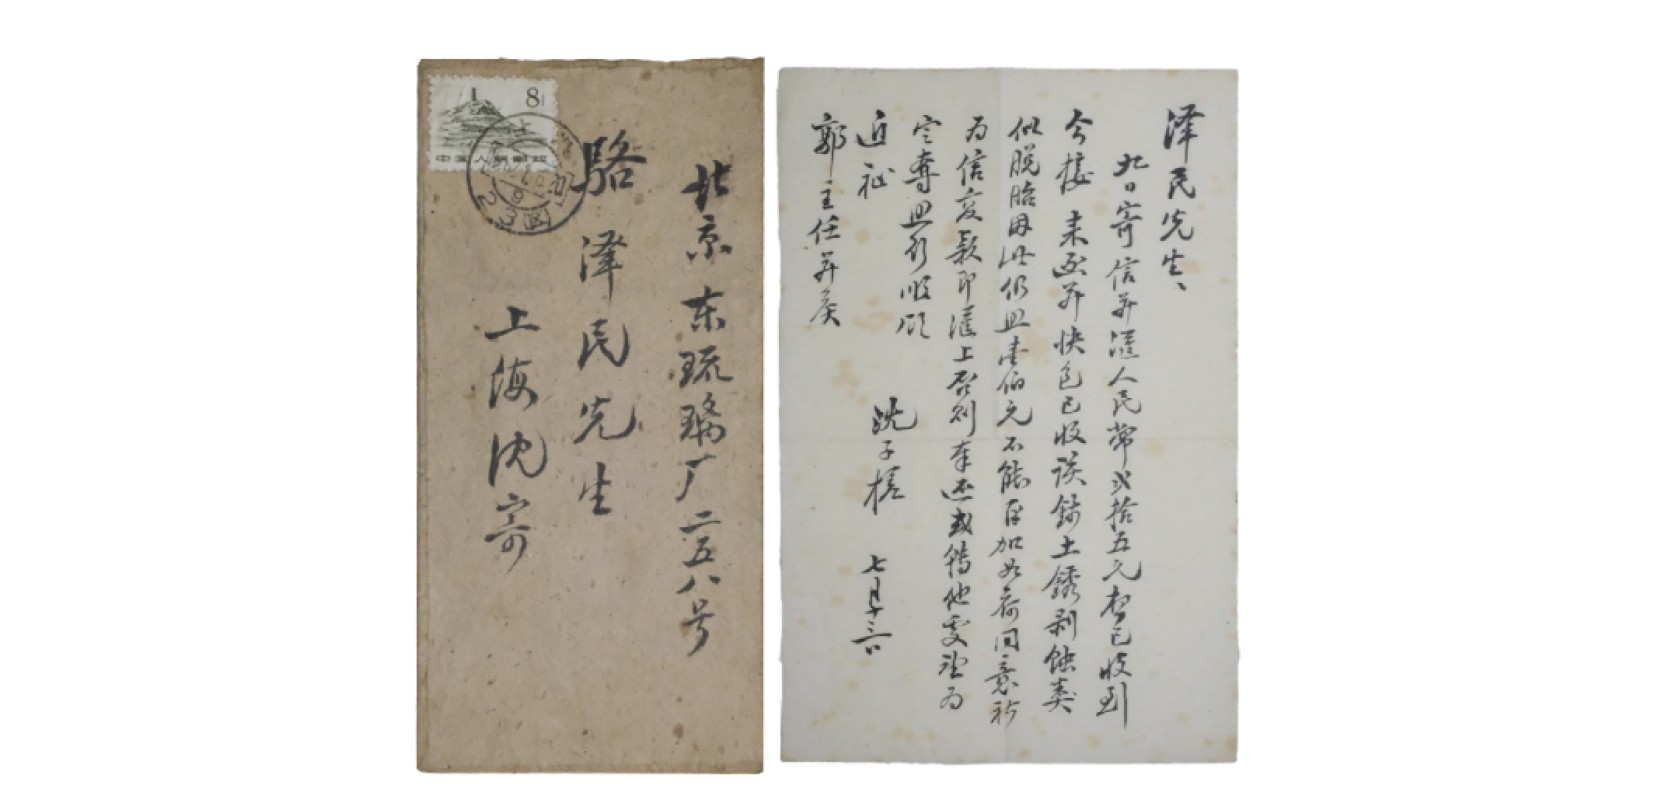 8
中国人民邮政
北京东琉璃厂二五八号
骆泽民先生
上海沈寄
泽民先生、
九日寄信并汇人民币贰拾五元想已收到
今接 来函并快包已收该钱土锈剥蚀类
似脱胎因此仍照壹佰元不能再加如荷同意祈
为信爰款即汇上否则奉还或转他处望为
定夺照行顺颂
近祉
沈子槎 七月十三日
郭主任并候